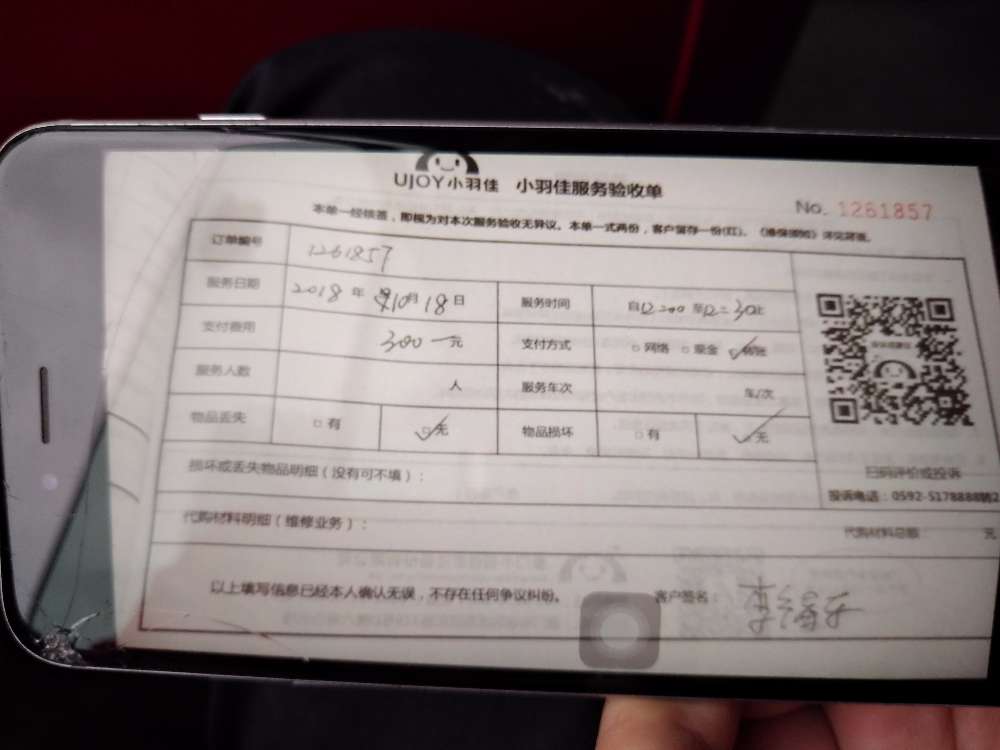 UJOY小羽佳 小羽佳服务验收单
No. 1261857
本单一经核签，即视为对本次服务验收无异议。本单一式两份，客户留存一份(红)。
订单编号 1261857
服务日期 2018 年 10月 18日 服务时间 自12:00 至12:30止
支付费用 300 元 支付方式 □网络 □现金 转账
服务人数 人 服务车次 车/次
物品丢失 □有 □无 物品损坏 □有 □无
扫码评价或投诉
损坏或丢失物品明细（没有可不填）：
投诉电话：0592-5178888转2
代购材料明细（维修业务）： 代购材料总额： 元
以上填写信息已经本人确认无误，不存在任何争议纠纷。 客户签名：